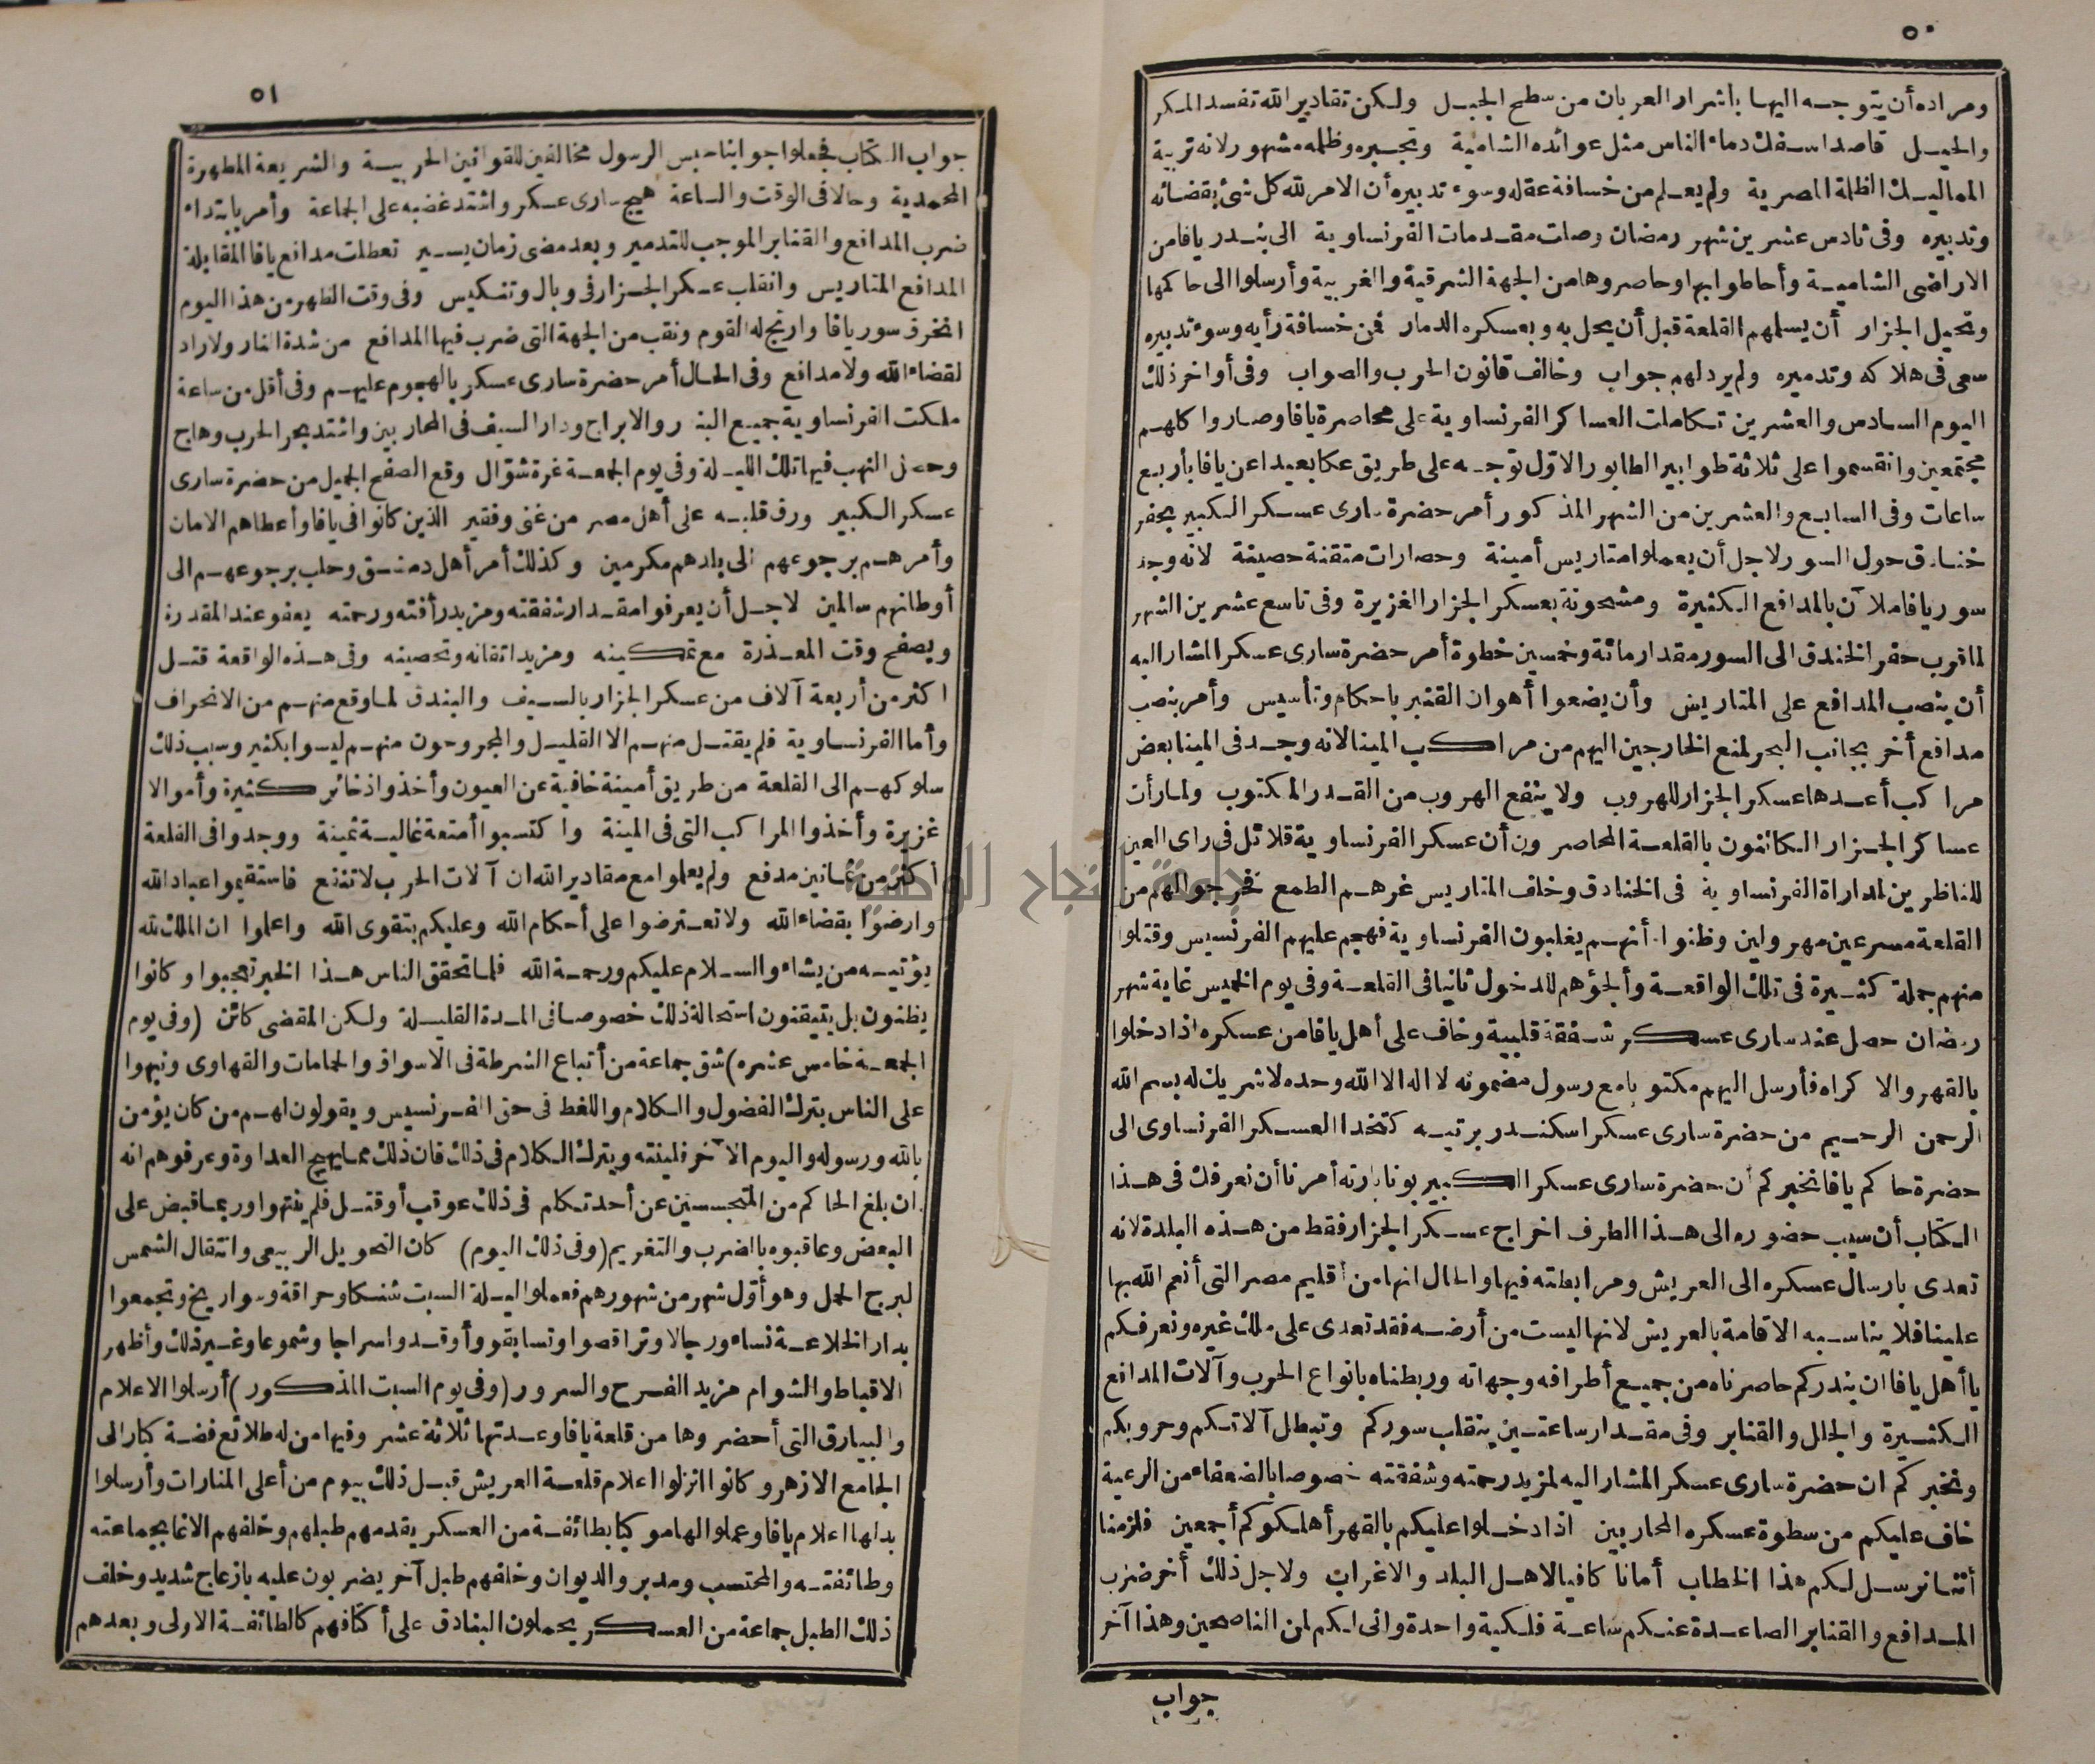 ٥٠
ومراده أن يتوجه اليها باشرار العربان من سطح الجبل ولكن تقادير الله تفسد المكر
والحيل قاصدا سفك دماء الناس مثل عوائده الشامية وتجبره وظلمه مشهور لانه تربية
المماليك الظلمة المصرية ولم يعلم من خسافة عقله وسوء تدبيره أن الامر لله كل شئ بقضائه
وتدبيره وفى سادس عشرين شهر رمضان وصلت مقدمات الفرنساوية الى بندر يافا من
الاراضى الشامية وأحاطوا بها وحاصروها من الجهة الشرقية والغربية وأرسلوا الى حاكمها
وكيل الجزار أن يسلمهم القلعة قبل أن يحل به وبعسكره الدمار فمن خسافة رأيه وسوء تدبيره
سعى فى هلاكه وتدميره ولم يرد لهم جواب وخالف قانون الحرب والصواب وفى أواخر ذلك
اليوم السادس والعشرين تكاملت العساكر الفرنساوية على محاصرة يافا وصاروا كلهم
مجتمعين وانقسموا على ثلاثة طوابير الطابور الاول توجه على طريق عكا بعيدا عن يافا بأربع
ساعات وفى السابع والعشرين من الشهر المذكور أمر حضرة سارى عسكر الكبير بحفر
خنادق حول السور لاجل أن يعملوا متاريس أمينة وحصارات متقنة حصينة لانه وجد
سور يافا ملآن بالمدافع الكثيرة ومشحونة بعسكر الجزار الغزيرة وفى تاسع عشرين الشهر
لما قرب حفر الخندق الى السور مقدار مائة وخمسين خطوة أمر حضرة سارى عسكر المشار اليه
أن ينصب المدافع على المتاريس وأن يضعوا أهوان القنبر باحكام وتأسيس وأمر بنصب
مدافع أخر بجانب البحر لمنع الخارجين اليهم من مراكب المينا لانه وجد فى المينا بعض
مراكب أعدها عسكر الجزار للهروب ولا ينفع الهروب من القدر المكتوب ولما رأت
عساكر الجزار الكائنون بالقلعة المحاصرون أن عسكر الفرنساوية قلائل فى راى العين
للناظرين لمداراة الفرنساوية فى الخنادق وخلف المتاريس غرهم الطمع فخرجوا لهم من
القلعة مسرعين مهرولين وظنوا أنهم يغلبون الفرنساوية فهجم عليهم الفرنسيس وقتلوا
منهم جملة كثيرة فى تلك الواقعة وألجؤهم للدخول ثانيا فى القلعة وفى يوم الخميس غاية شهر
رمضان حصل عند سارى عسكر شفقة قلبية وخاف على أهل يافا من عسكره اذا دخلوا
بالقهر والا كراه فأرسل اليهم مكتوبا مع رسول مضمونه لا اله الا الله وحده لا شريك له بسم الله
الرحمن الرحيم من حضرة سارى عسكر اسكندر برتيه كتخدا العسكر الفرنساوى الى
حضرة حاكم يافا نخبركم أن حضرة سارى عسكر الكبير بونابارته أمرنا أن نعرفك فى هذا
الكتاب أن سبب حضوره الى هذا الطرف اخراج عسكر الجزار فقط من هذه البلدة لانه
تعدى بارسال عسكره الى العريش ومرابطته فيها والحال انها من اقليم مصر التى أنعم الله بها
علينا فلا يناسبه الاقامة بالعريش لانها ليست من أرضه فقد تعدى على ملك غيره ونعرفكم
يا أهل يافا ان بندركم حاصرناه من جميع أطرافه وجهاته وربطناه بانواع الحرب وآلات المدافع
الكثيرة والجلل والقنابر وفى مقدار ساعتين ينقلب سوركم وتبطل آلاتكم وحروبكم
ونخبركم ان حضرة سارى عسكر المشار اليه لمزيد رحمته وشفقته خصوصا بالضعفاء من الرعية
خاف عليكم من سطوة عسكره المحاربين اذا دخلوا عليكم بالقهر أهلكوكم أجمعين فلزمنا
أننا نرسل لكم هذا الخطاب أمانا كافيا لاهل البلد والاغراب ولاجل ذلك أخر ضرب
المدافع والقنابر الصاعدة عنكم ساعة فلكية واحدة وانى لكم لمن الناصحين وهذا آخر
جواب
٥١
جواب الكتاب فجعلوا جوابنا حبس الرسول مخالفين للقوانين الحربية والشريعة المطهرة
المحمدية وحالا فى الوقت والساعة هيج سارى عسكر واشتد غضبه على الجماعة وأمر بابتداء
ضرب المدافع والقنابر الموجب للتدمير وبعد مضى زمان يسير تعطلت مدافع يافا المقابلة
المدافع المتاريس وانقلب عسكر الجزار فى وبال وتنكيس وفى وقت الظهر من هذا اليوم
انخرق سور يافا وارتج له القوم ونقب من الجهة التى ضرب فيها المدافع من شدة النار ولا راد
لقضاء الله ولا مدافع وفى الحال أمر حضرة سارى عسكر بالهجوم عليهم وفى أقل من ساعة
ملكت الفرنساوية جميع البندر والابراج ودار السيف فى المحاربين واشتد بحر الحرب وهاج
وحصل النهب فيها تلك الليلة وفى يوم الجمعة غرة شوال وقع الصفح الجميل من حضرة سارى
عسكر الكبير ورق قلبه على أهل مصر من غنى وفقير الذين كانوا فى يافا وأعطاهم الامان
وأمرهم برجوعهم الى بلدهم مكرمين وكذلك أمر أهل دمشق وحلب برجوعهم الى
أوطانهم سالمين لاجل أن يعرفوا مقدار شفقته ومزيد رأفته ورحمته يعفو عند المقدرة
ويصفح وقت المعذرة مع تمكينه ومزيد اتقانه وتحصينه وفى هذه الواقعة قتل
اكثر من أربعة آلاف من عسكر الجزار بالسيف والبندق لما وقع منهم من الانحراف
وأما الفرنساوية فلم يقتل منهم الا القليل والمجروحون منهم ليسوا بكثير وسبب ذلك
سلوكهم الى القلعة من طريق أمينة خافية عن العيون وأخذوا ذخائر كثيرة وأموالا
غزيرة وأخذوا المراكب التى فى المينة واكتسبوا أمتعة غالية ثمينة ووجدوا فى القلعة
أكثر من ثمانين مدفع ولم يعلموا مع مقادير الله ان آلات الحرب لا تنفع فاستقيموا عباد الله
وارضوا بقضاء الله ولا تعترضوا على أحكام الله وعليكم بتقوى الله واعلموا ان الملك لله
يؤتيه من يشاء والسلام عليكم ورحمة الله فلما تحقق الناس هذا الخبر تعجبوا وكانوا
يظنون بل يتيقنون استحالة ذلك خصوصا فى المدة القليلة ولكن المقضى كائن (وفى يوم
الجمعة خامس عشره) شق جماعة من أتباع الشرطة فى الاسواق والحمامات والقهاوى ونبهوا
على الناس بترك الفضول والكلام واللغط فى حق الفرنسيس ويقولون لهم من كان يؤمن
بالله ورسوله واليوم الآخر فلينته ويترك الكلام فى ذلك فان ذلك مما يهيج العداوة وعرفوهم انه
ان بلغ الحاكم من المتجسسين عن أحد تكلم فى ذلك عوقب أو قتل فلم ينتهوا وربما قبض على
البعض وعاقبوه بالضرب والتغريم (وفى ذلك اليوم) كان التحويل الربيعى وانتقال الشمس
لبرج الحمل وهو أول شهر من شهورهم فعملوا ليلة السبت شنكا وحراقة وسواريخ وتجمعوا
بدار الخلاعة نساء ورجالا وتراقصوا وتسابقوا وأوقدوا سراجا وشموعا وغير ذلك وأظهر
الاقباط والشوام مزيد الفرح والسرور (وفى يوم السبت المذكور) أرسلوا الاعلام
والبيارق التى أحضروها من قلعة يافا وعدتها ثلاثة عشر وفيها من له طلائع فضة كبار الى
الجامع الازهر وكانوا انزلوا اعلام قلعة العريش قبل ذلك بيوم من أعلى المنارات وأرسلوا
بدلها اعلام يافا وعملوا لها موكبا بطائفة من العسكر يقدمهم طبلهم وخلفهم الاغا بجماعته
وطائفته والمحتسب ومدبرو الديوان وخلفهم طبل آخر يضربون عليه بازعاج شديد وخلف
ذلك الطبل جماعة من العسكر يحملون البنادق على أكتافهم كالطائفة الاولى وبعدهم
جامعة النجاح الوطنية